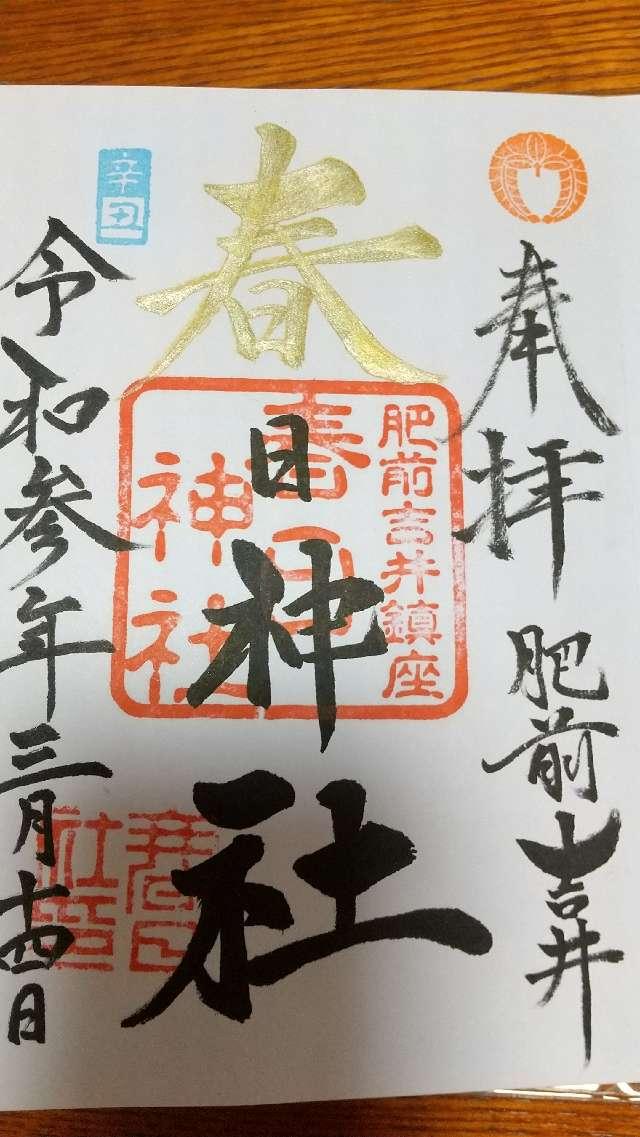 奉拝
肥前吉井
春日神社
肥前吉井鎮座
春日
神社
辛丑
令和参年三月十四日
春日
社印